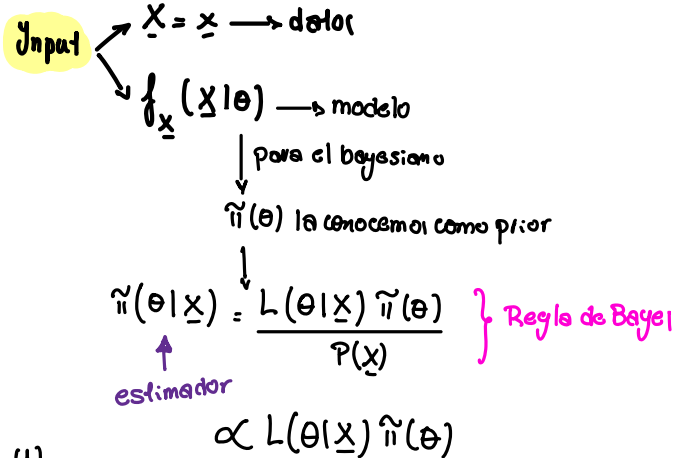 Input
X = x → datos
f_x (x|θ) → modelo
para el bayesiano
π̃(θ) la conocemos como prior
π̃(θ|x) = L(θ|x) π̃(θ) / P(x) } Regla de Bayes
estimador
∝ L(θ|x) π̃(θ)